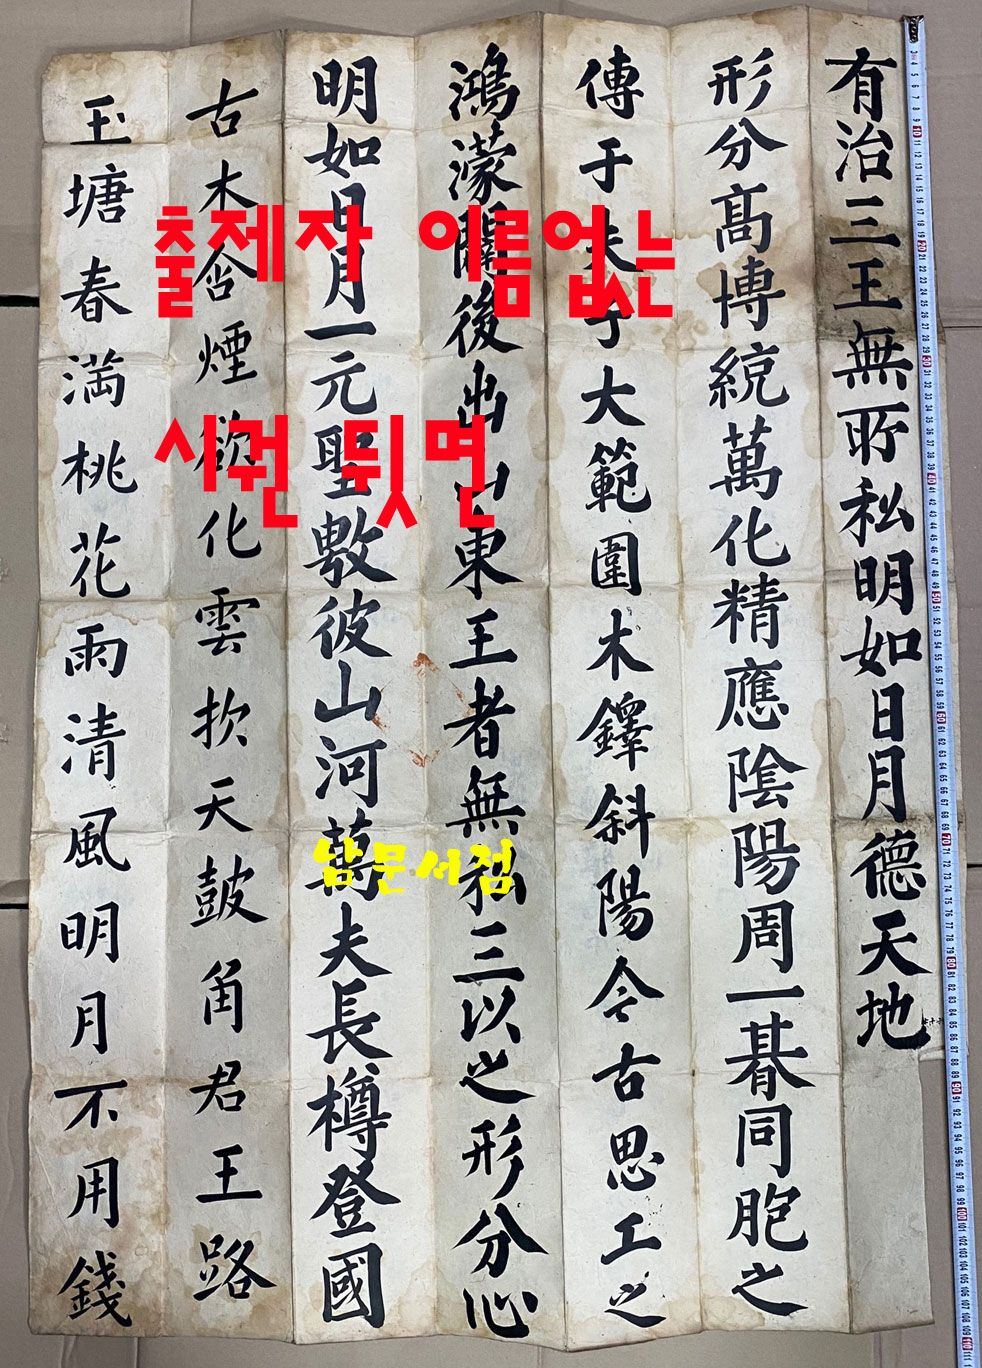 有治三王無所私明如日月德天地
形分高博統萬化精應陰陽周一朞同胞之
傳于夫子大範圍木鐸斜陽今古思工之
鴻濛闢後出山東王者無私三以之形分心
明如日月一元聖敷彼山河萬夫長樽登國
古木含煙欲化雲抆天鼓角君王路
玉塘春満桃花雨清風明月不用錢
출제자 이름없는
시권 뒷면
남문서점